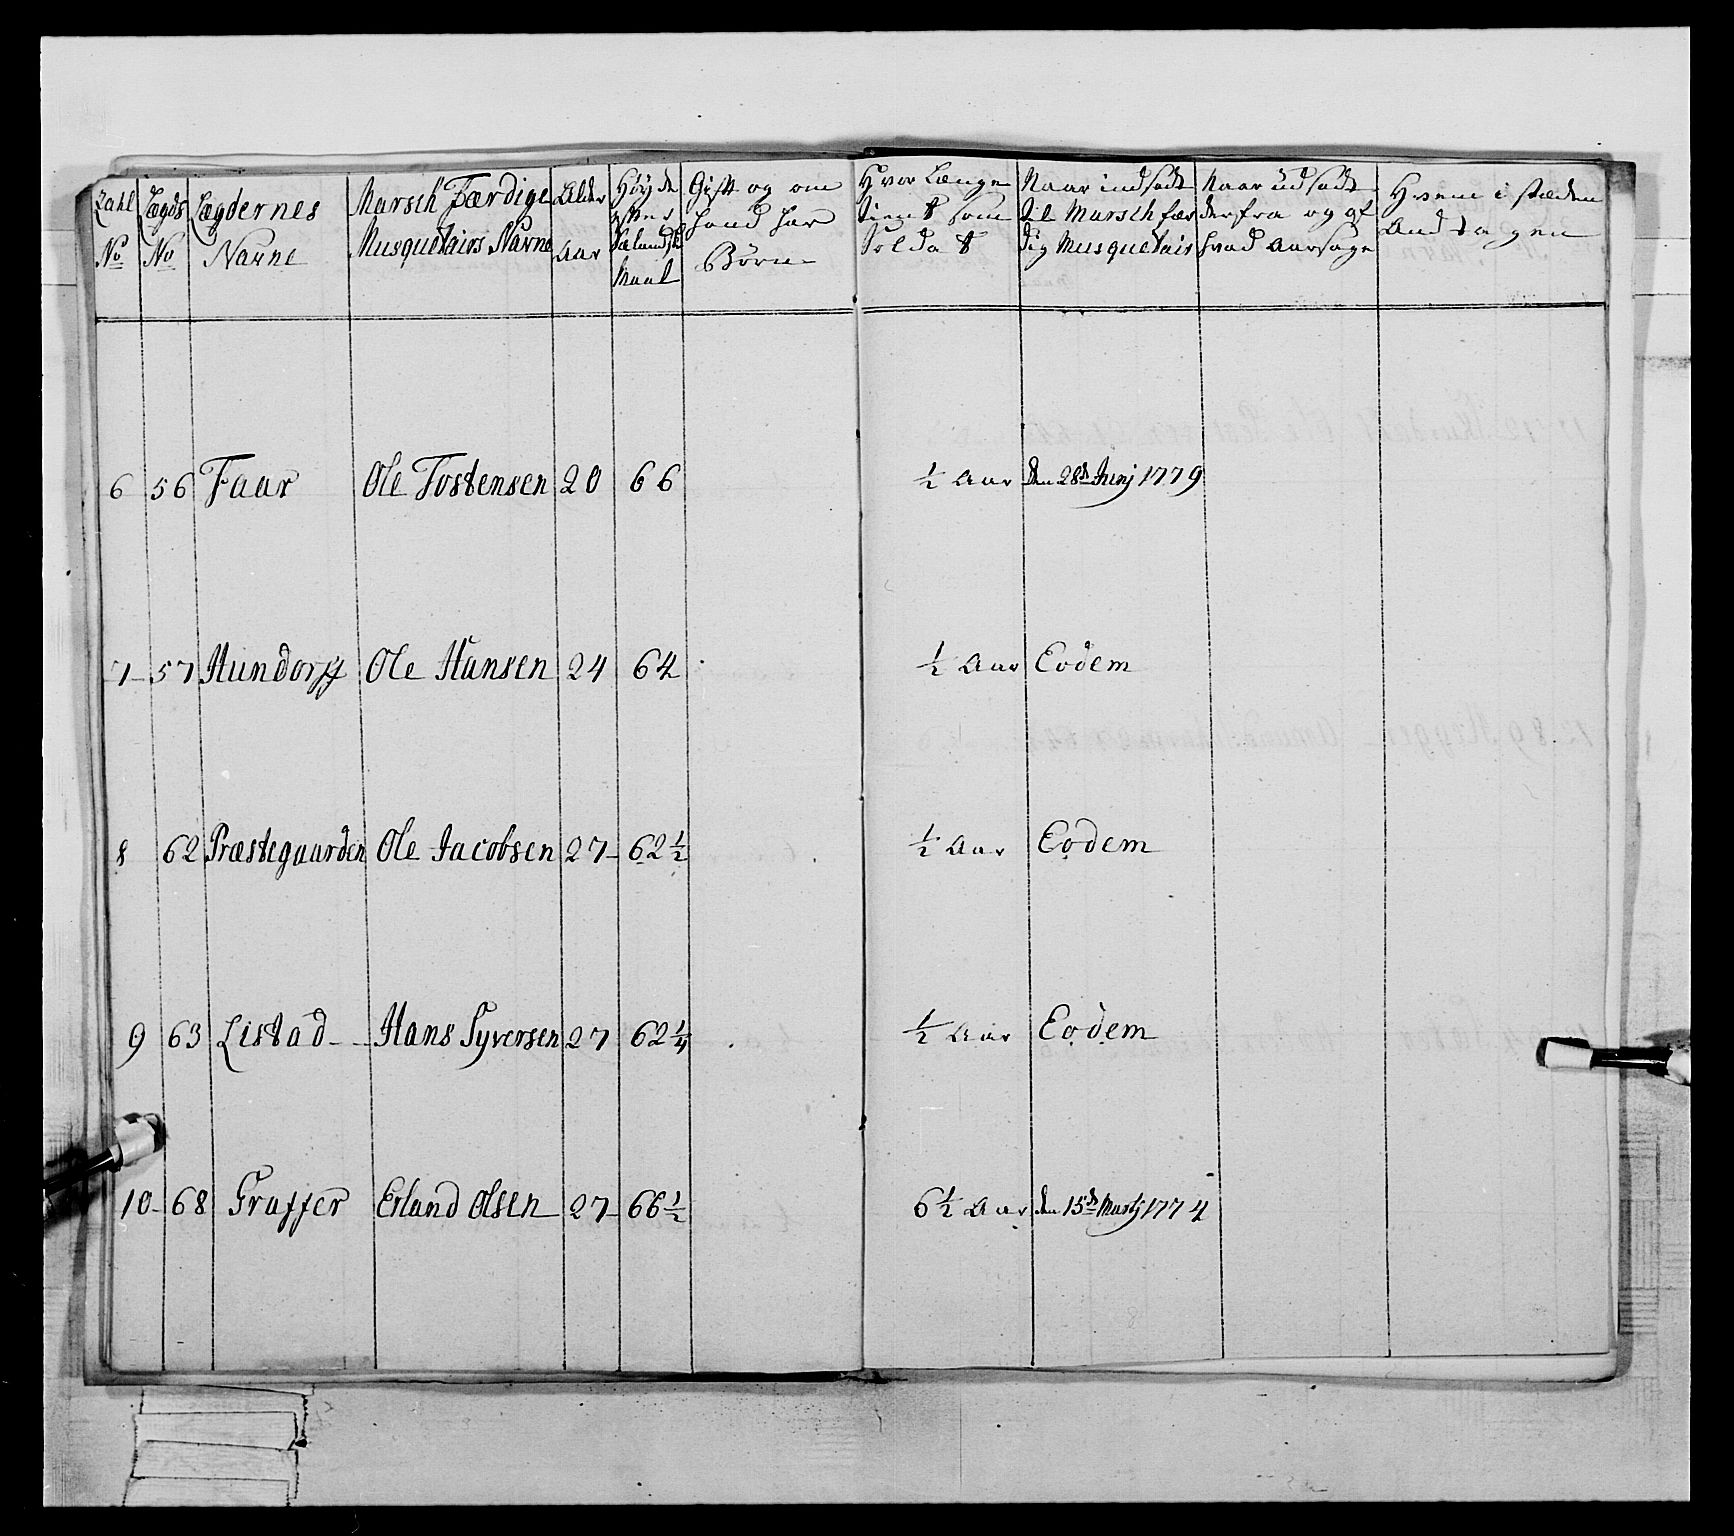 Zahl No
Lægds No
Lægdernes Navne
Marsch Færdige Musquetairs Navne
Alder Aar
Høyde efter Sælandsk Maal
Gift og om hand har Børn
Hvor Længe tient som Soldat
Naar indsadt til Marsch færdig Musquetair
Naar udsadt derfra og af hvad Aarsage
Hvem i stæden Andtagen
6 56 Faar Ole Tostensen 20 66 ½ Aar den 28de Junj 1779
7 57 Hundorff Ole Hansen 24 64 ½ Aar Eodem
8 62 Præstegaarden Ole Jacobsen 27 62½ ½ Aar Eodem
9 63 Listad Hans Syversen 27 62¼ ½ Aar Eodem
10 68 Graffer Erland Olsen 27 66½ 6½ Aar den 15de Martj 1774